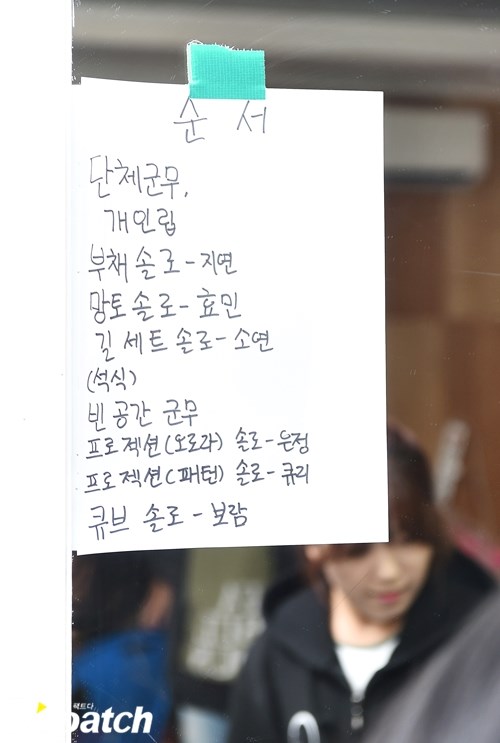 순 서
단체군무,
개인립
부채 솔로-지연
망토 솔로-효민
길 세트 솔로-소연
(석식)
빈 공간 군무
프로젝션(오로라) 솔로-은정
프로젝션(패턴) 솔로-큐리
큐브 솔로-보람
팩트다
patch